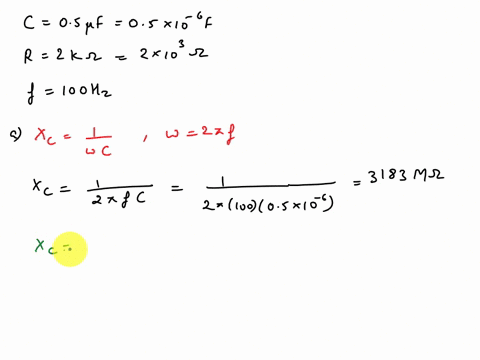 C = 0.5 μF = 0.5 × 10⁻⁶ F
R = 2 kΩ = 2 × 10³ Ω
f = 100 Hz
a) Xc = 1/ωC , ω = 2πf
Xc = 1/2πfC = 1/2π(100)(0.5 × 10⁻⁶) = 3183 MΩ
Xc =